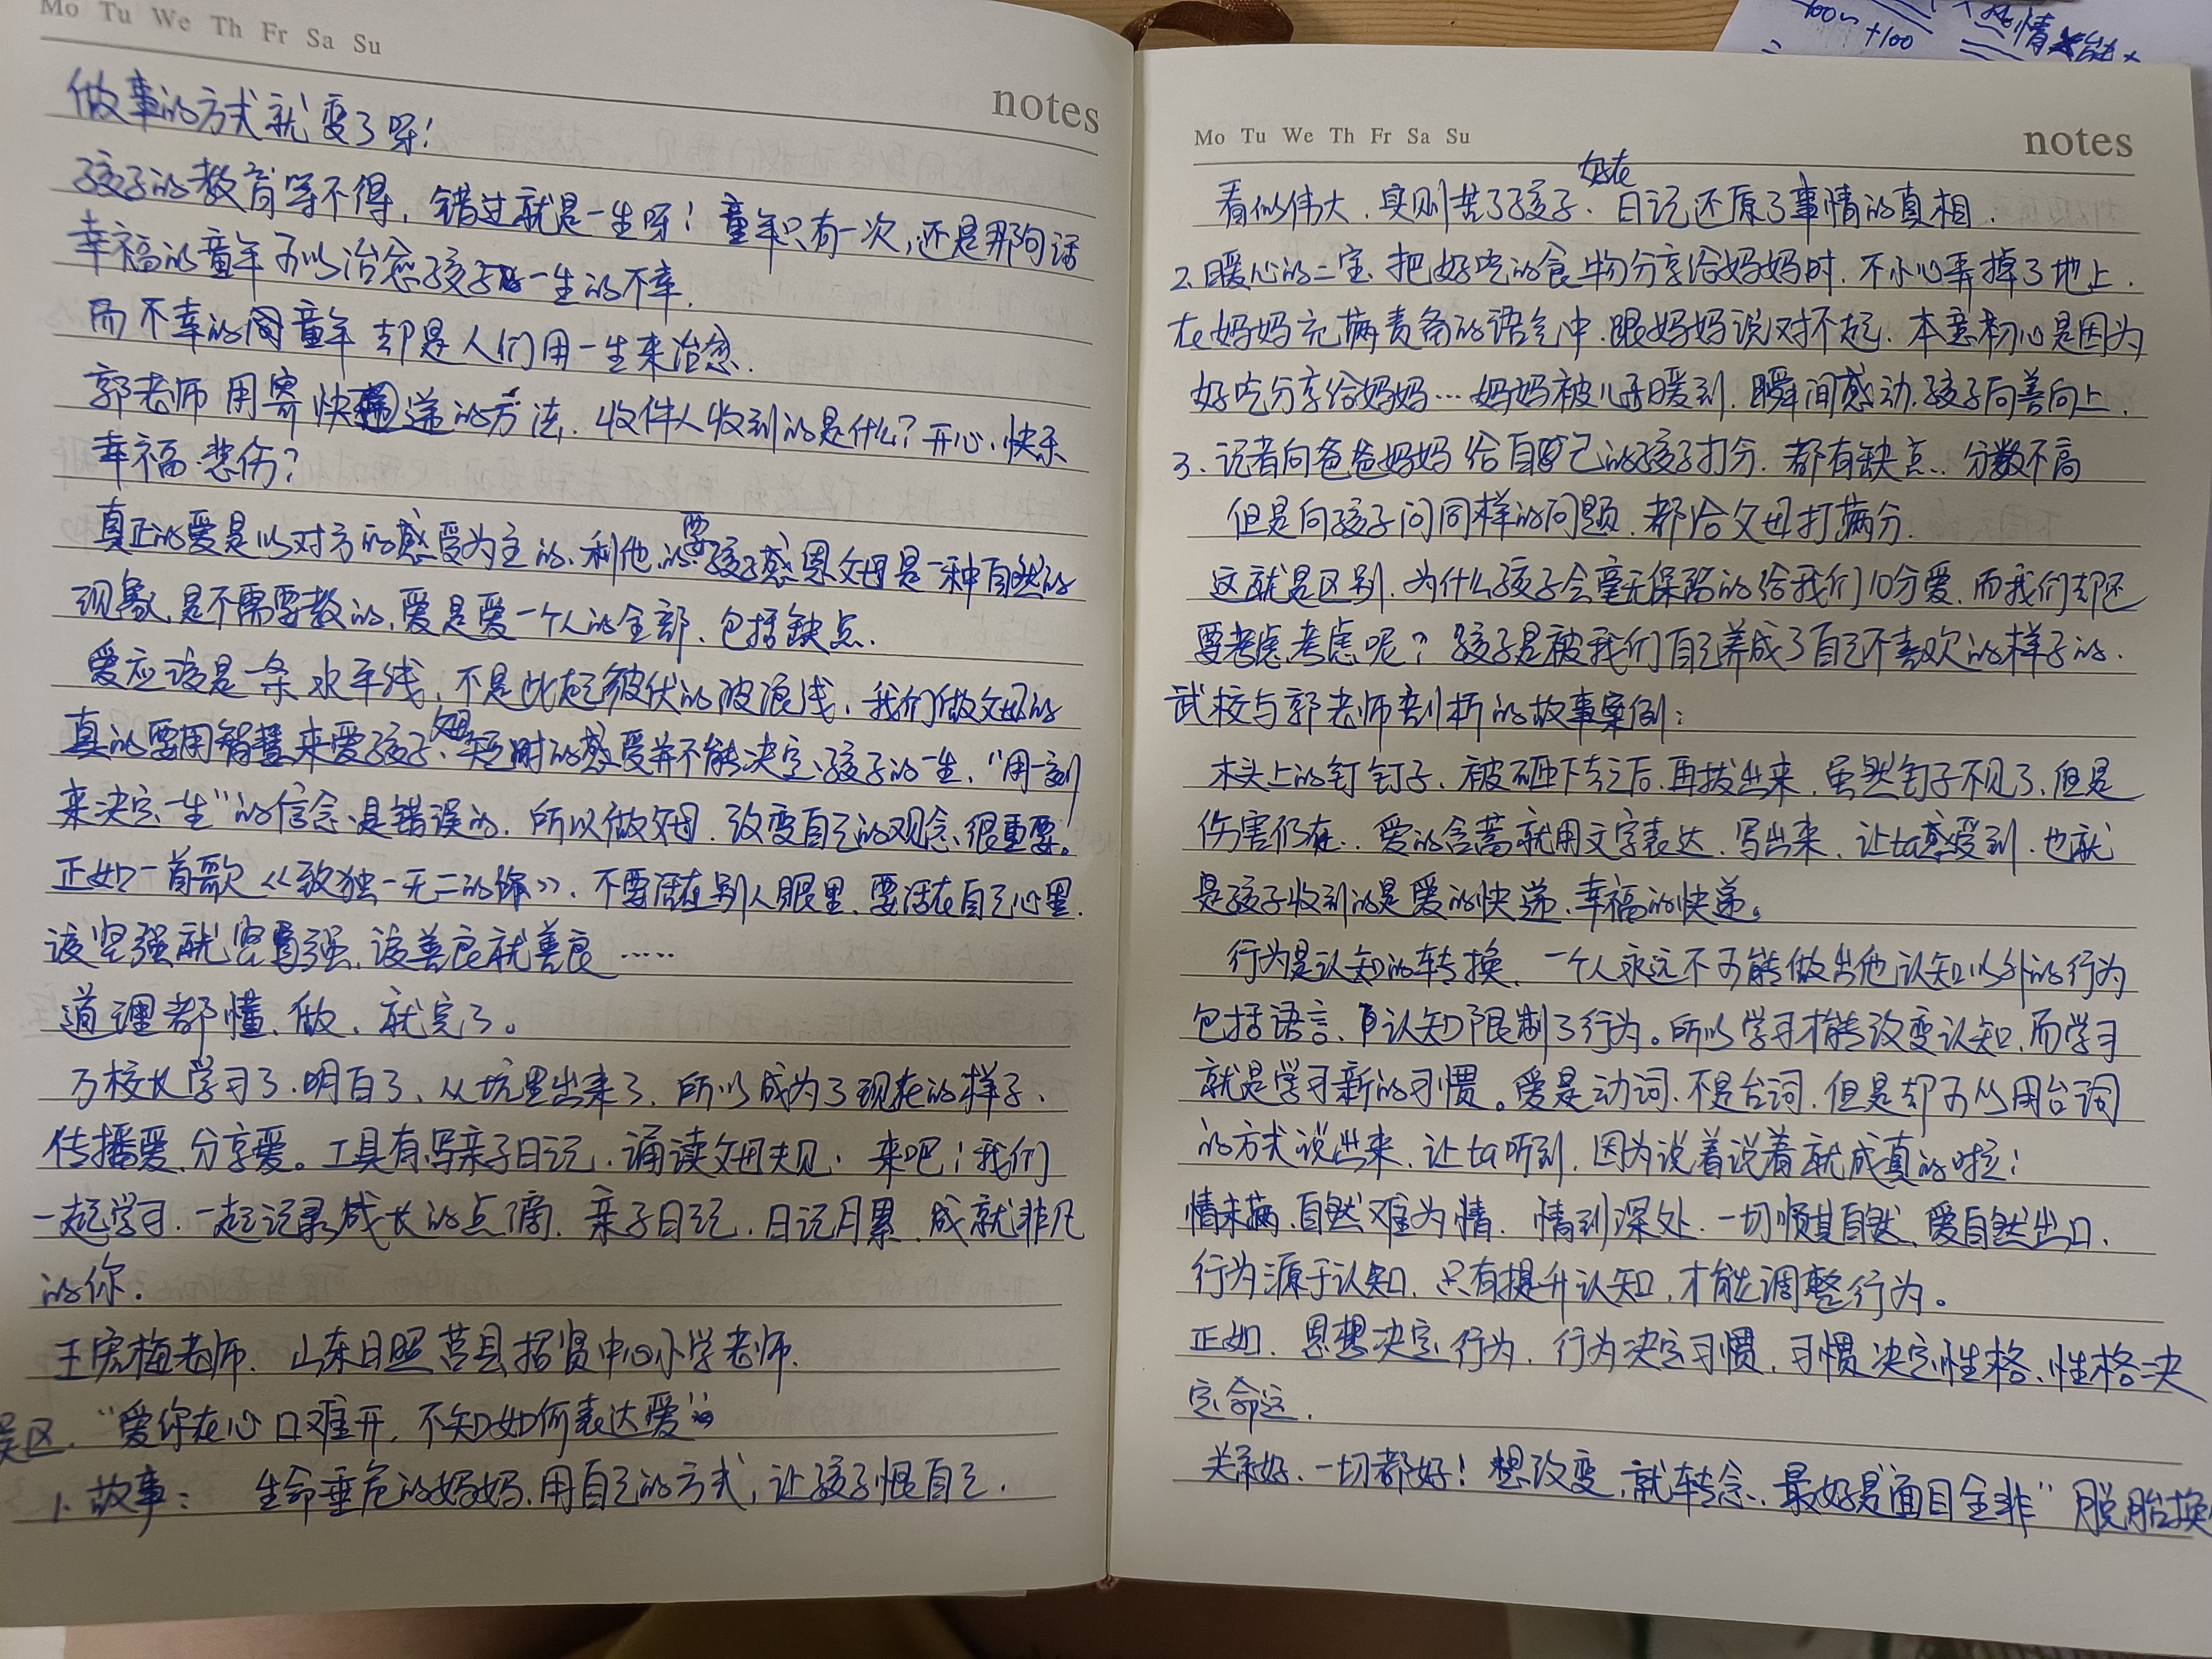 Mo Tu We Th Fr Sa Su
notes
做事的方式就变了呀！
孩子的教育等不得，错过就是一生呀！童年只有一次，还是那句话
幸福的童年可以治愈孩子一生的不幸.
而不幸的童年却是人们用一生来治愈.
郭老师用寄快递的方法，收件人收到的是什么？开心、快乐
幸福、悲伤？
真正的爱是以对方的感受为主的、利他的.要孩子感恩父母是一种自然的
现象，是不需要教的，爱是爱一个人的全部、包括缺点.
爱应该是一条水平线，不是此起彼伏的波浪线，我们做父母的
真的要用智慧来爱孩子、短时的感受并不能决定孩子的一生，“用一刻
来决定一生”的信念是错误的，所以做父母，改变自己的观念很重要。
正如一首歌《致独一无二的你》，不要活在别人眼里、要活在自己心里.
该坚强就坚强，该善良就善良……
道理都懂、做、就完了。
万校长学习了、明白了、从坑里出来了、所以成为了现在的样子、
传播爱、分享爱。工具有写亲子日记、诵读父母规、来吧！我们
一起学习、一起记录成长的点滴、亲子日记，日记月累、成就非凡
的你.
王宏梅老师、山东日照莒县招贤中心小学老师.
误区，“爱你在心口难开，不知如何表达爱”
1、故事： 生命垂危的妈妈、用自己的方式，让孩子恨自己.
Mo Tu We Th Fr Sa Su
notes
好在
看似伟大、实则苦了孩子、日记还原了事情的真相.
2、暖心的二宝、把好吃的食物分享给妈妈时、不小心弄掉了地上.
在妈妈充满责备的语气中、跟妈妈说对不起、本意初心是因为
好吃分享给妈妈…妈妈被儿子暖到、瞬间感动、孩子向善向上.
3、记者问爸爸妈妈给自己的孩子打分、都有缺点、分数不高
但是向孩子问同样的问题、都给父母打满分.
这就是区别、为什么孩子会毫无保留的给我们10分爱、而我们却还
要考虑考虑呢？孩子是被我们自己养成了自己不喜欢的样子的.
武校与郭老师剖析的故事案例：
木头上的钉钉子、被砸下去之后、再拔出来、虽然钉子不见了、但是
伤害仍在、爱的含蓄就用文字表达、写出来、让ta感受到、也就
是孩子收到的是爱的快递、幸福的快递。
行为是认知的转换、一个人永远不可能做出他认知以外的行为
包括语言、认知限制了行为。所以学习才能改变认知、而学习
就是学习新的习惯。爱是动词、不是台词、但是却可以用台词
的方式说出来、让ta听到，因为说着说着就成真的啦！
情未满、自然难为情、情到深处、一切顺其自然、爱自然出口.
行为源于认知、只有提升认知，才能调整行为。
正如、思想决定行为、行为决定习惯、习惯决定性格、性格决
定命运.
关系好、一切都好！想改变、就转念、最好是“面目全非”脱胎换